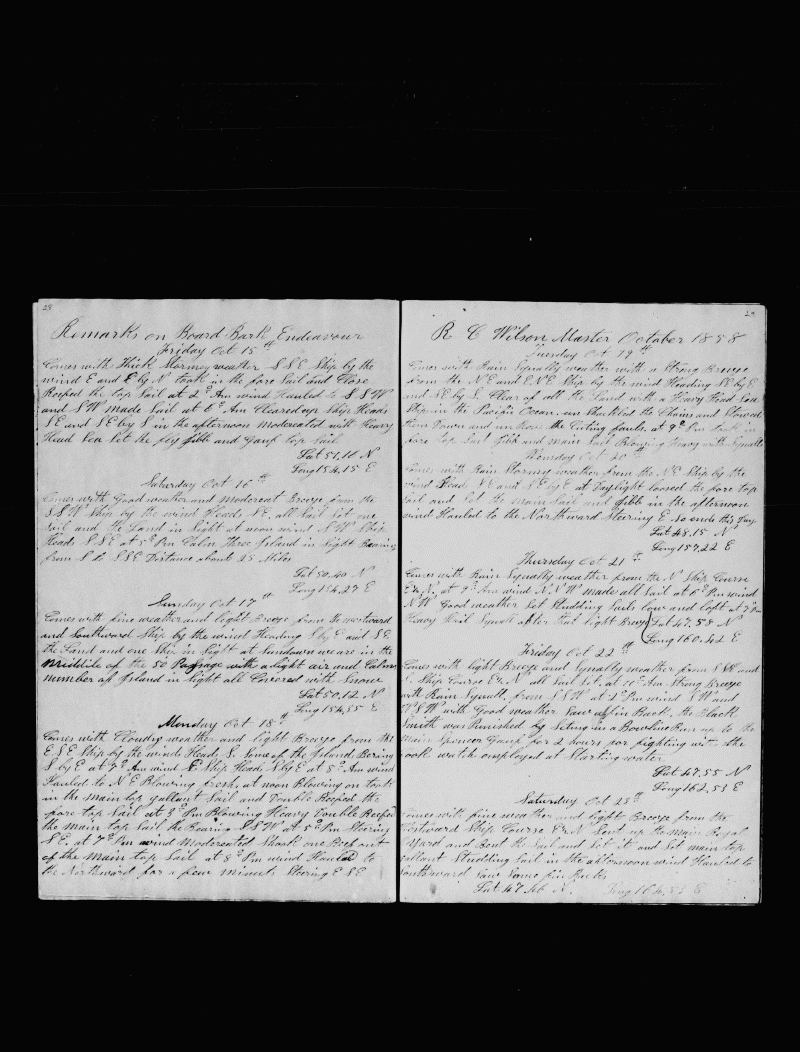 28
Remarks on Board Bark Endeavour
Friday Oct 15th
Comes with Thick Stormey weather S S E Ship by the
wind E and E by N took in the fore Sail and Close
Reefed the top Sail at 2 Am wind Hauled to S S W
and S W made Sail at 6 Am Cleared up Ship Heads
S E and S E by S in the afternoon modereated with Heavy
Head Sea Set the fly Jibb and Gauf top Sail
Lat 51,11 N
Long 154,15 E
Saturday Oct 16th
Comes with Good weather and modereat Breeze from the
S S W Ship by the wind Heads S E, all Sail Set one
Sail and the Land in Sight at noon wind S W Ship
Heads S S E at 5 Pm Calm Three Island in Sight Bearing
from S to S S E Distance about 25 Miles
Lat 50,40 N
Long 154,27 E
Sunday Oct 17th
Comes with fine weather and light Breeze from the westward
and Southward Ship by the wind Heading S by E and S E
the Land and one Ship in Sight at Sundown we are in the
Middile of the 50 Passage with a light air and Calm
number of Island in Sight all Covered with Snow
Lat 50,12 N
Long 154,55 E
Monday Oct 18th
Comes with Cloudy weather and light Breeze from the
E S E Ship by the wind Heads S. Some of the Island Bering
S by E at 7 Am wind E Ship Heads N by E at 8 Am wind
Hauled to N E Blowing fresh, at noon Blowing on took
in the main top gallant Sail and Double Reefed the
fore top Sail at 3 Pm Blowing Heavy Double Reefed
the main top Sail the Bearing S S W at 5 Pm Stering
S E. at 7 Pm wind Modereated Shook one Reef out
of the Main top Sail at 8 Pm wind Hauled to
the Northward for a few minuts Steering E S E
29
R C Wilson Master October 1858
Tuesday Oct 19th
Comes with Rain Squally weather with a Strong Breeze
from the N E and E N E Ship by the wind Heading S E by E
and S E by S Clear of all the Land with a Heavy Head Sea
Ship in the Pacific Ocean. un Shackled the Chains and Stowed
them Down and un Hove the Cuting faals. at 9 Pm took in
fore top Sail Jibb and main Sail Blowing Heavy with Squalls
Wensday Oct 20th
Comes with Rain Stormy weather from the N E Ship by the
wind Heads E and S E by E at Daylight loosed the fore top
Sail and Set the main Sail and Jibb in the afternoon
wind Hauled to the Northward Steering E. So ends this Day.
Lat 48,15 N
Long 157,22 E
Thursday Oct 21th
Comes with Rain Squally weather from the N Ship Course
E & N. at 9 Am wind N. N W made all Sail at 6 Pm wind
N W Good weather Set Studding Sails low and loft at 7 Pm
Heavy Hail Squall after that light Breeze Lat 47,58 N
Long 160,42 E
Friday Oct 22th
Comes with light Breeze and Squally weather from S W and
S. Ship Course E & N all Sail Set. at 11 Am Strong Breeze
with Rain Squall from S S W at 2 Pm wind S W and
W S W with Good weather Saw a fin Back. the Black
Smith was Punished by Seting in a Bowline Run up to the
Main Spencer Gauf for 2 hours for fighting with the
Cook watch employed at Starting water
Lat 47,55 N
Long 162,53 E
Saturday Oct 23th
Comes with fine weather and light Breeze from the
Westward Ship Course E & N Sent up the main Royal
Yard and Bent the Sail and Set it and Set main top
Gallant Studding Sail in the afternoon wind Hauled to
Southward Saw Some fin Backs
Lat 47,46 N. Long 164,53 E